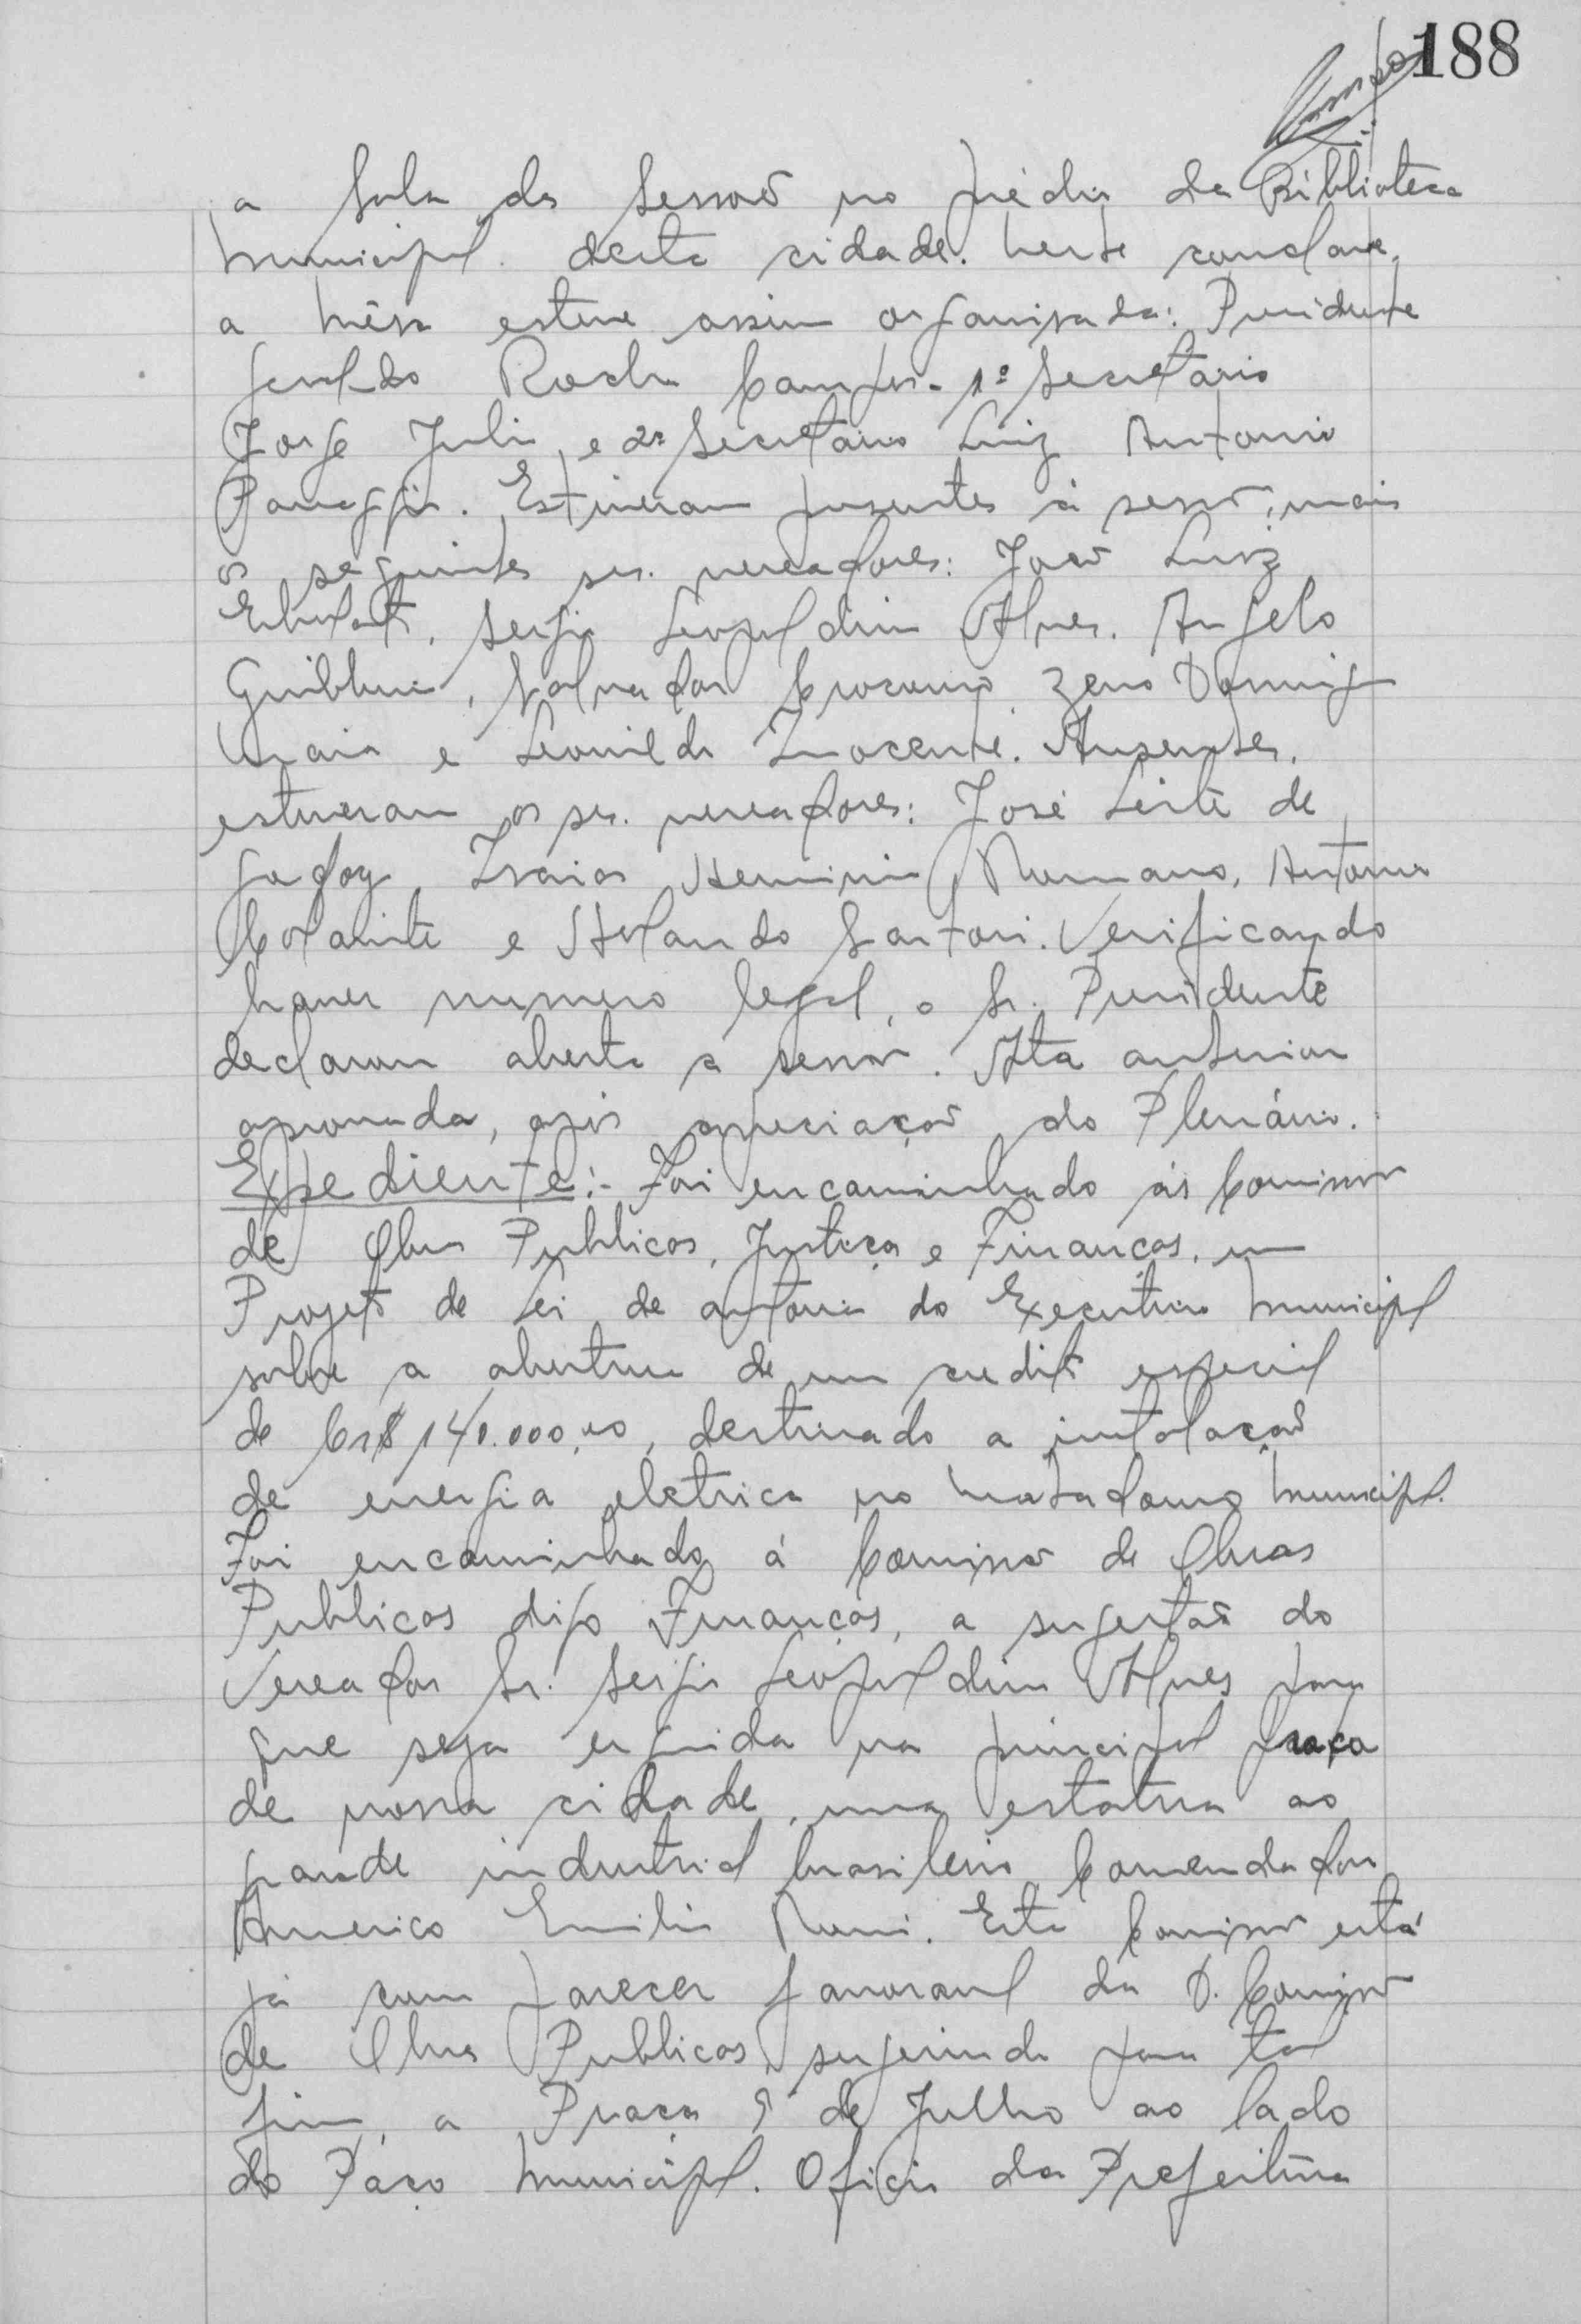 188
a Sala da Sessão no prédio da Biblioteca
Municipal desta cidade. Neste conclave,
a Mêsa esteve assim organisada: Presidente
Geraldo Rocha Campos. 1º Secretário
Jorge Julio e 2º Secretário Luiz Antonio
Estiveram presentes á sessão, mais
os seguintes srs. vereadores: João Luiz
Sergio Leopoldino Alves. Angelo
Guilherme, Salvador Zeno Domingo
Maia e Leonildo Inocente. Ausentes,
estiveram os srs. vereadores: José Leite de
Godoy, Izaias Herminio Romano, Antonio
Colarite e Holando Sartori. Verificando
haver numero legal, o Sr. Presidente
declarou aberta a sessão. Ata anterior
aprovada, após apreciação do Plenário.
Expediente:- Foi encaminhado ás Comissão
de Obras Publicas, Justiça e Finanças, um
Projeto de Lei de autoria do Executivo Municipal
sobre a abertura de um credito especial
de Cr$ 140.000,00, destinado a instalação
de energia eletrica no Matadouro Municipal.
Foi encaminhado á Comissão de Obras
Publicas digo Finanças, a sugestão do
Vereador Sr. Sergio Leopoldino Alves para
que seja erguida na principal praça
de nossa cidade, uma estatua ao
grande industrial brasileiro Comendador
Americo Emilio Romi. Esta Comissão está
já com parecer favoravel da D. Comissão
de Obras Publicas, sugerindo para tal
fim, a Praça 9 de Julho ao lado
do Paço Municipal. Oficio da Prefeitura